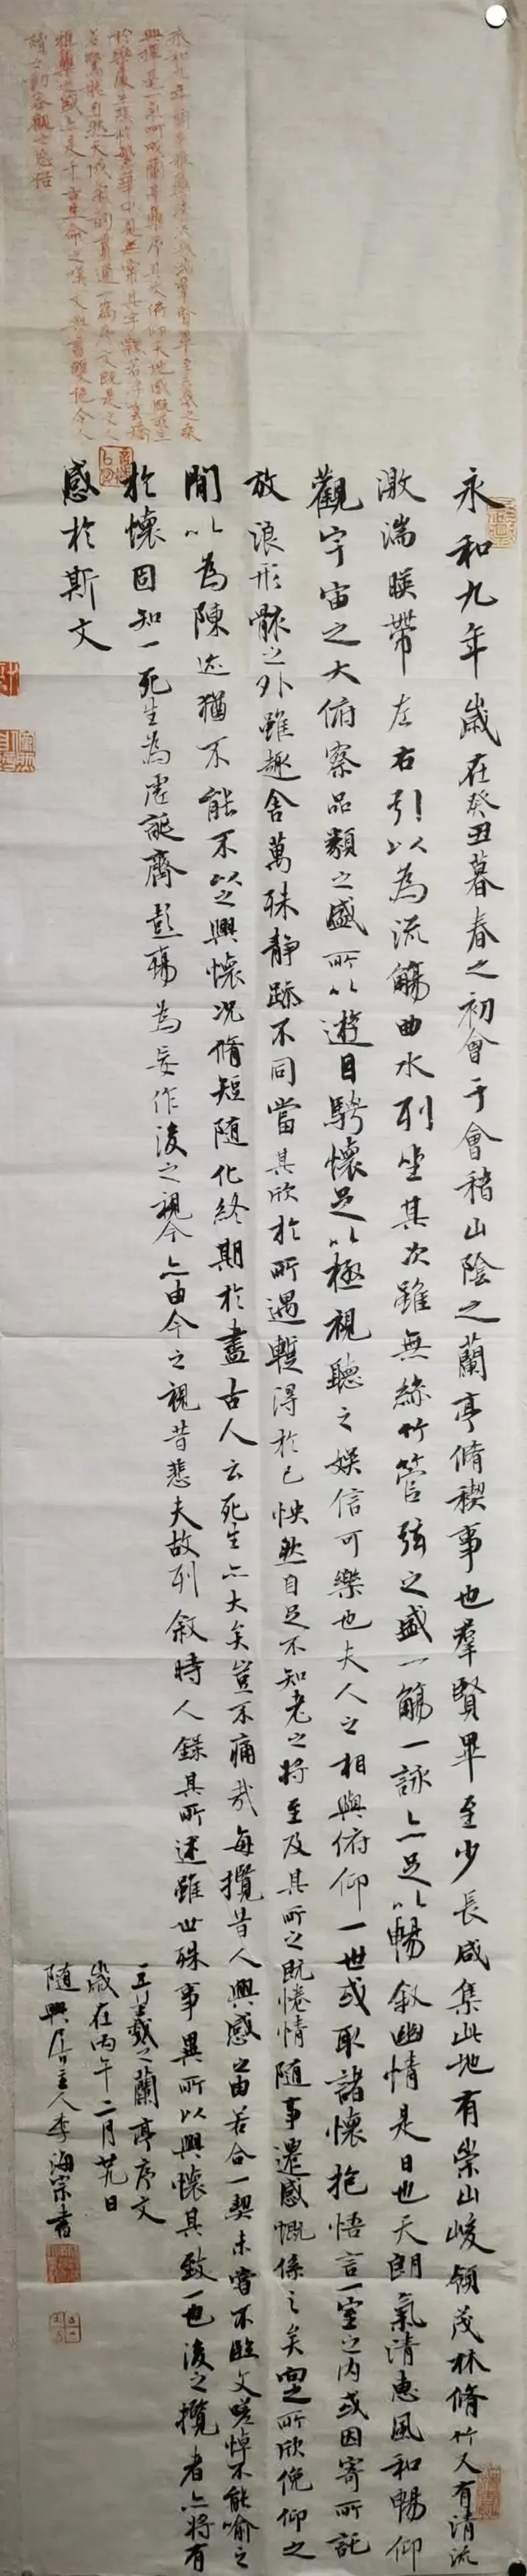 永和九年歲在癸丑暮春之初會于會稽山陰之蘭亭脩稧事也羣賢畢至少長咸集此地有崇山峻領茂林脩竹又有清流
激湍暎帶左右引以為流觴曲水列坐其次雖無絲竹管弦之盛一觴一詠亦足以暢敘幽情是日也天朗氣清惠風和暢仰
觀宇宙之大俯察品類之盛所以遊目騁懷足以極視聽之娛信可樂也夫人之相與俯仰一世或取諸懷抱悟言一室之內或因寄所託
放浪形骸之外雖趣舍萬殊静躁不同當其欣於所遇暫得於己怏然自足不知老之將至及其所之既惓情隨事遷感慨係之矣向之所欣俛仰之
閒以為陳迹猶不能不以之興懷況脩短隨化終期於盡古人云死生亦大矣豈不痛哉每攬昔人興感之由若合一契未嘗不臨文嗟悼不能喻之
於懷固知一死生為虛誕齊彭殤為妄作後之視今亦由今之視昔悲夫故列敘時人錄其所述雖世殊事異所以興懷其致一也後之攬者亦將有
感於斯文
王羲之蘭亭序文
歲在丙午二月廿九日
随興居主人李海宗書